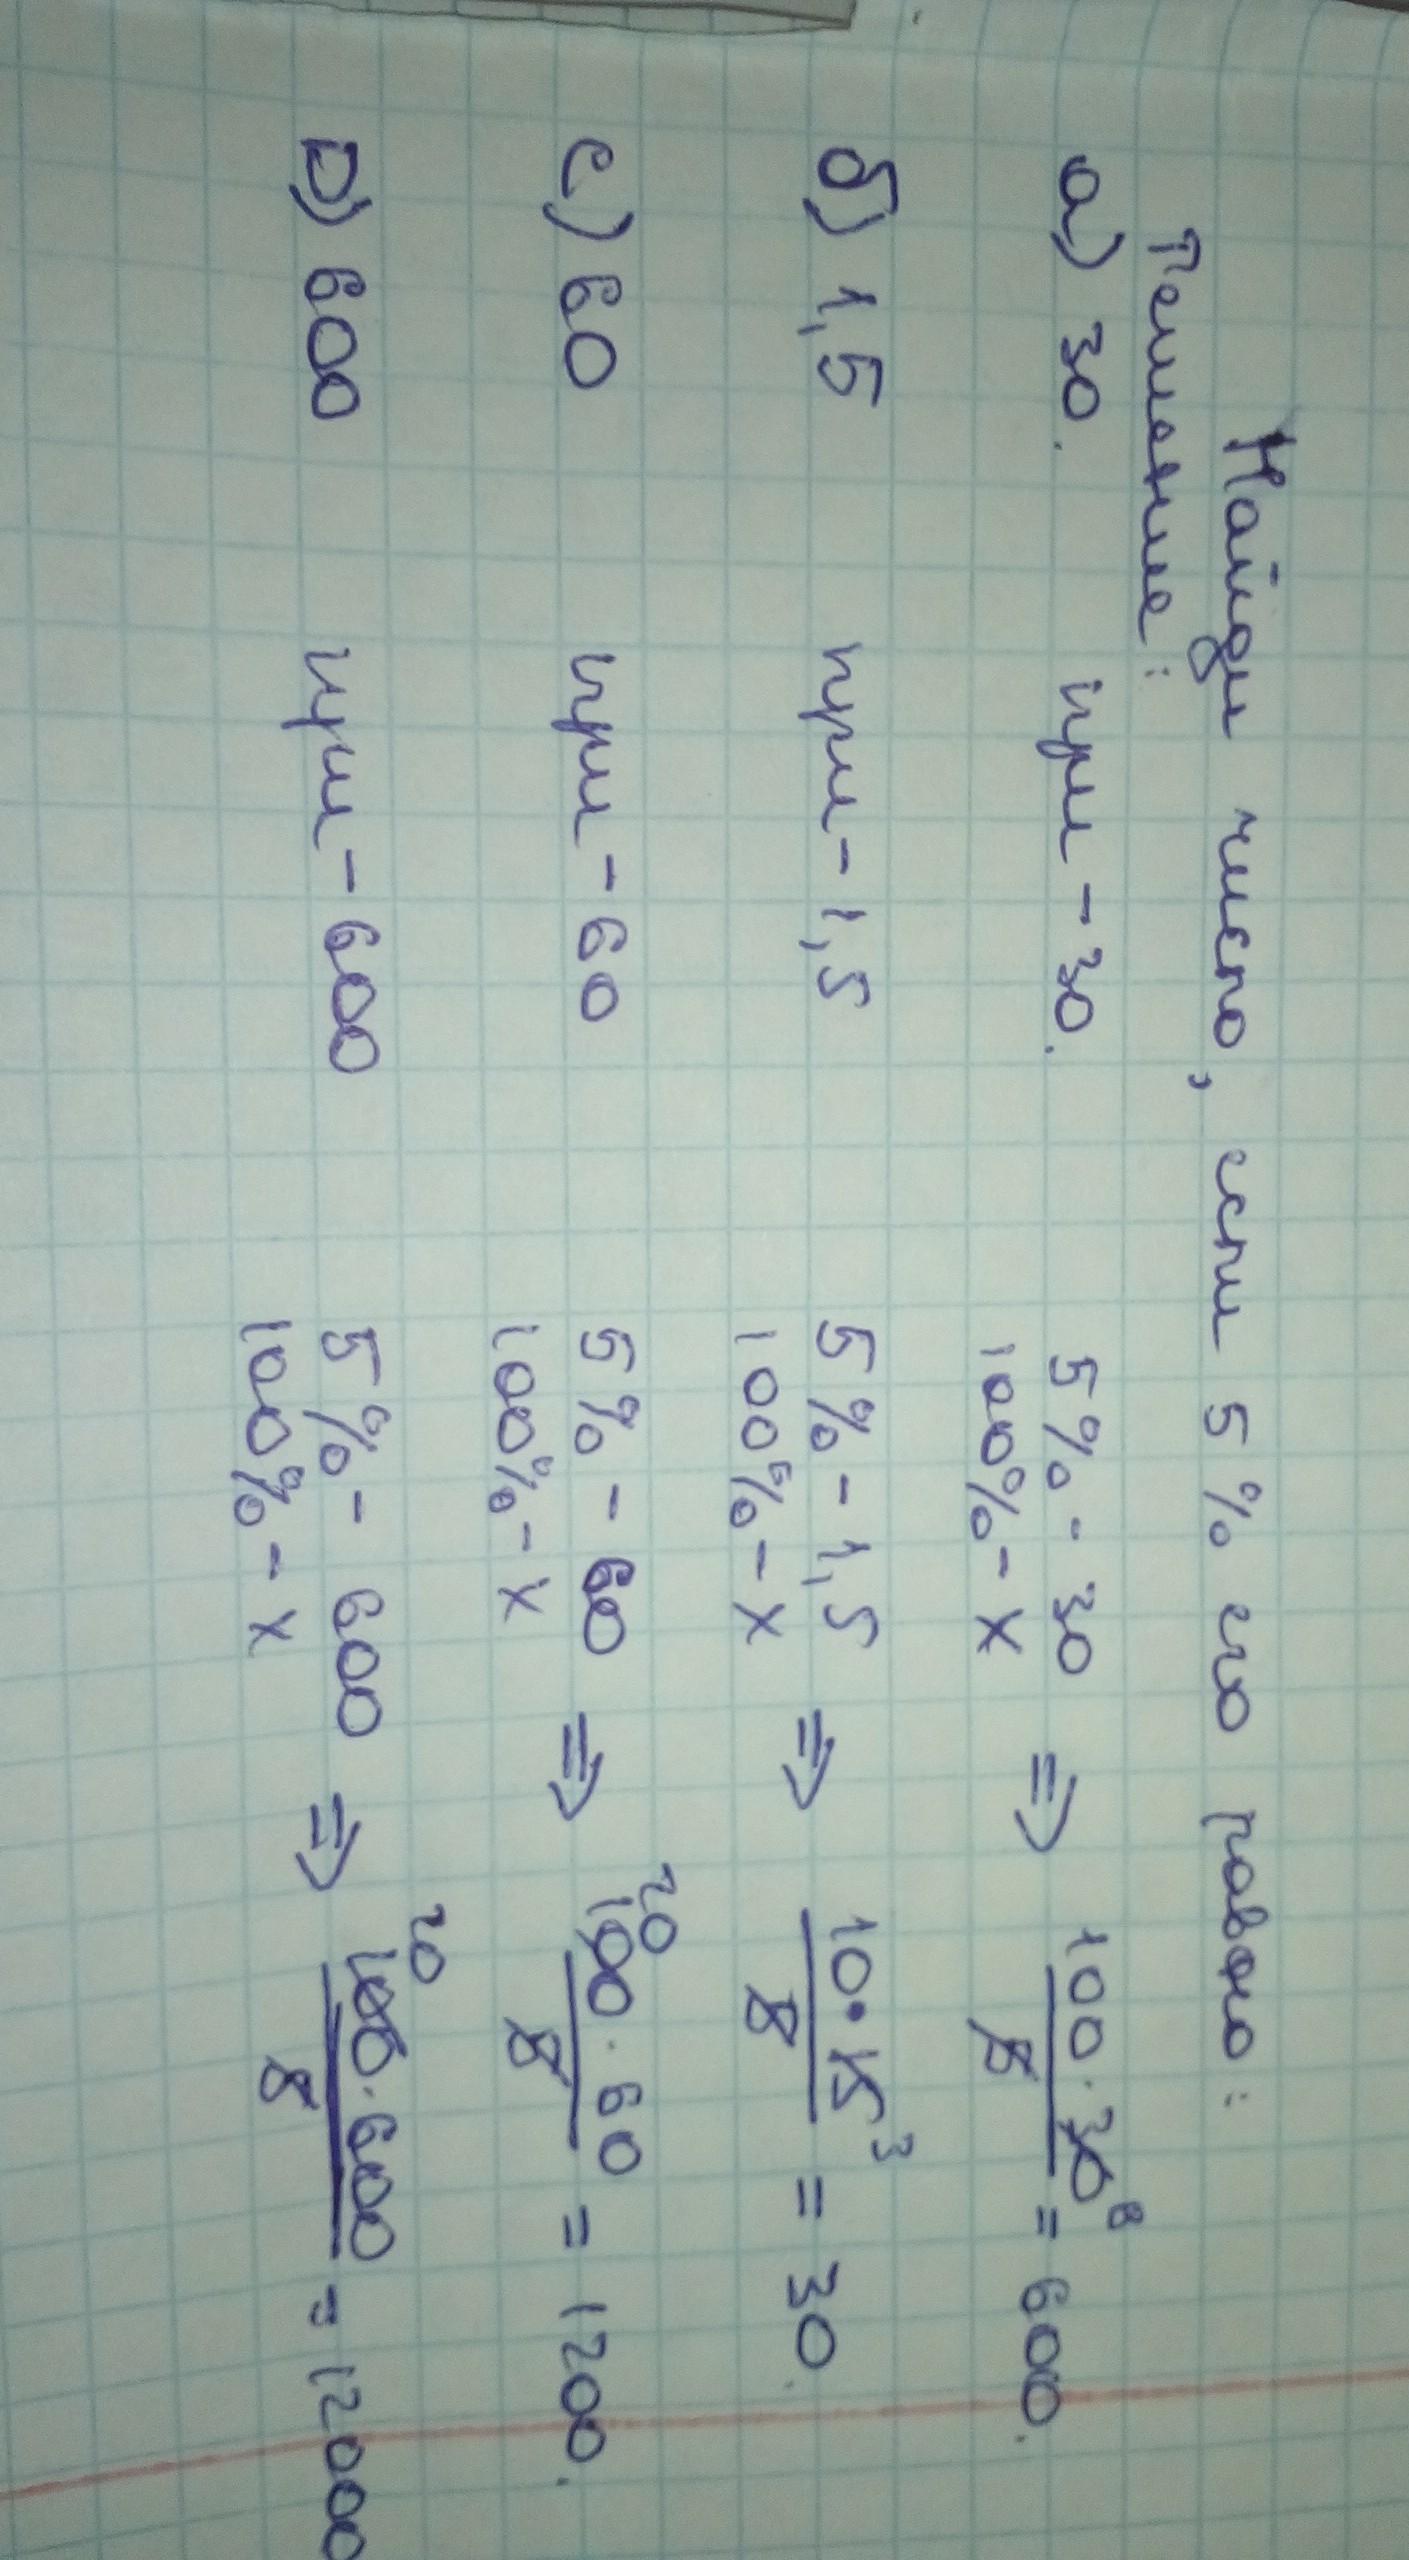 Найди число, если 5 % его равно:
Решение:
а) 30. при - 30. 5 % - 30 ⇒ 100 · 30 6 / 5 = 600.
100% - x
б) 1,5 при - 1,5 5 % - 1,5 ⇒ 10 · 15 3 / 5 = 30.
100% - x
с) 60 при - 60 5 % - 60 ⇒ 20 100 · 60 / 5 = 1200.
100% - x
D) 600 при - 600 5 % - 600 ⇒ 20 100 · 600 / 5 = 12000
100% - x